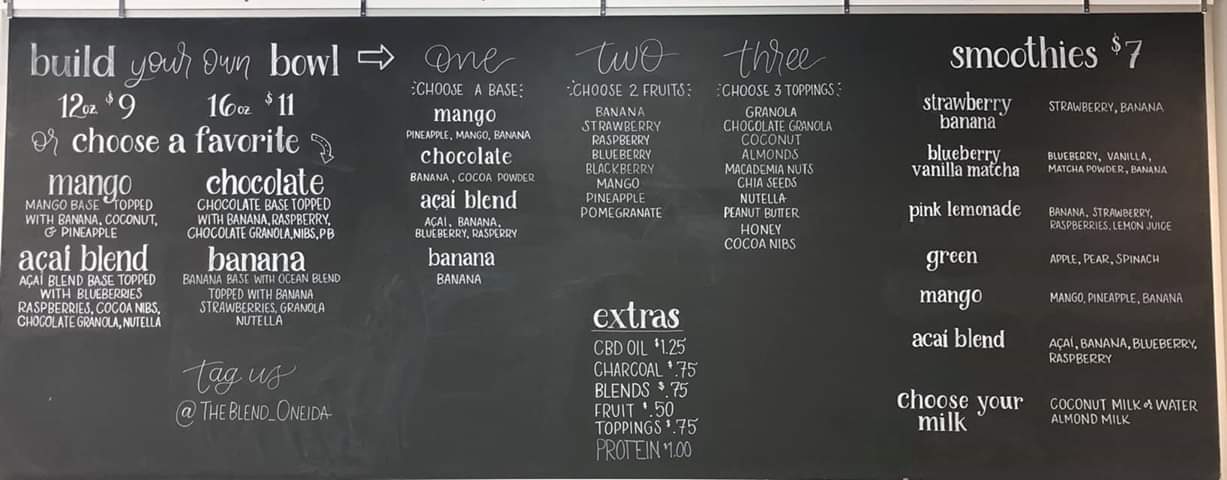 build your own bowl
12oz $9 16oz $11
or choose a favorite
mango
MANGO BASE TOPPED
WITH BANANA, COCONUT,
& PINEAPPLE
chocolate
CHOCOLATE BASE TOPPED
WITH BANANA, RASPBERRY,
CHOCOLATE GRANOLA, NIBS, PB
açaí blend
AÇAÍ BLEND BASE TOPPED
WITH BLUEBERRIES
RASPBERRIES, COCOA NIBS,
CHOCOLATE GRANOLA, NUTELLA
banana
BANANA BASE WITH OCEAN BLEND
TOPPED WITH BANANA
STRAWBERRIES, GRANOLA
NUTELLA
tag us
@THEBLEND_ONEIDA
one
CHOOSE A BASE:
mango
PINEAPPLE, MANGO, BANANA
chocolate
BANANA, COCOA POWDER
açaí blend
AÇAI, BANANA,
BLUEBERRY, RASPERRY
banana
BANANA
two
CHOOSE 2 FRUITS:
BANANA
STRAWBERRY
RASPBERRY
BLUEBERRY
BLACKBERRY
MANGO
PINEAPPLE
POMEGRANATE
three
CHOOSE 3 TOPPINGS:
GRANOLA
CHOCOLATE GRANOLA
COCONUT
ALMONDS
MACADEMIA NUTS
CHIA SEEDS
NUTELLA
PEANUT BUTTER
HONEY
COCOA NIBS
extras
CBD OIL $1.25
CHARCOAL $.75
BLENDS $.75
FRUIT $.50
TOPPINGS $.75
PROTEIN $1.00
smoothies $7
strawberry
banana
STRAWBERRY, BANANA
blueberry
vanilla matcha
BLUEBERRY, VANILLA,
MATCHA POWDER, BANANA
pink lemonade
BANANA, STRAWBERRY,
RASPBERRIES, LEMON JUICE
green
APPLE, PEAR, SPINACH
mango
MANGO, PINEAPPLE, BANANA
acaí blend
AÇAÍ, BANANA, BLUEBERRY,
RASPBERRY
choose your
milk
COCONUT MILK or WATER
ALMOND MILK